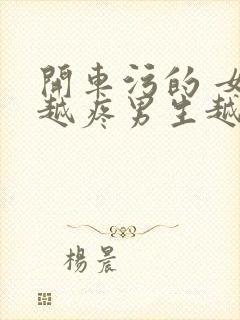 開車污的 女
越疼男生越
楊晨